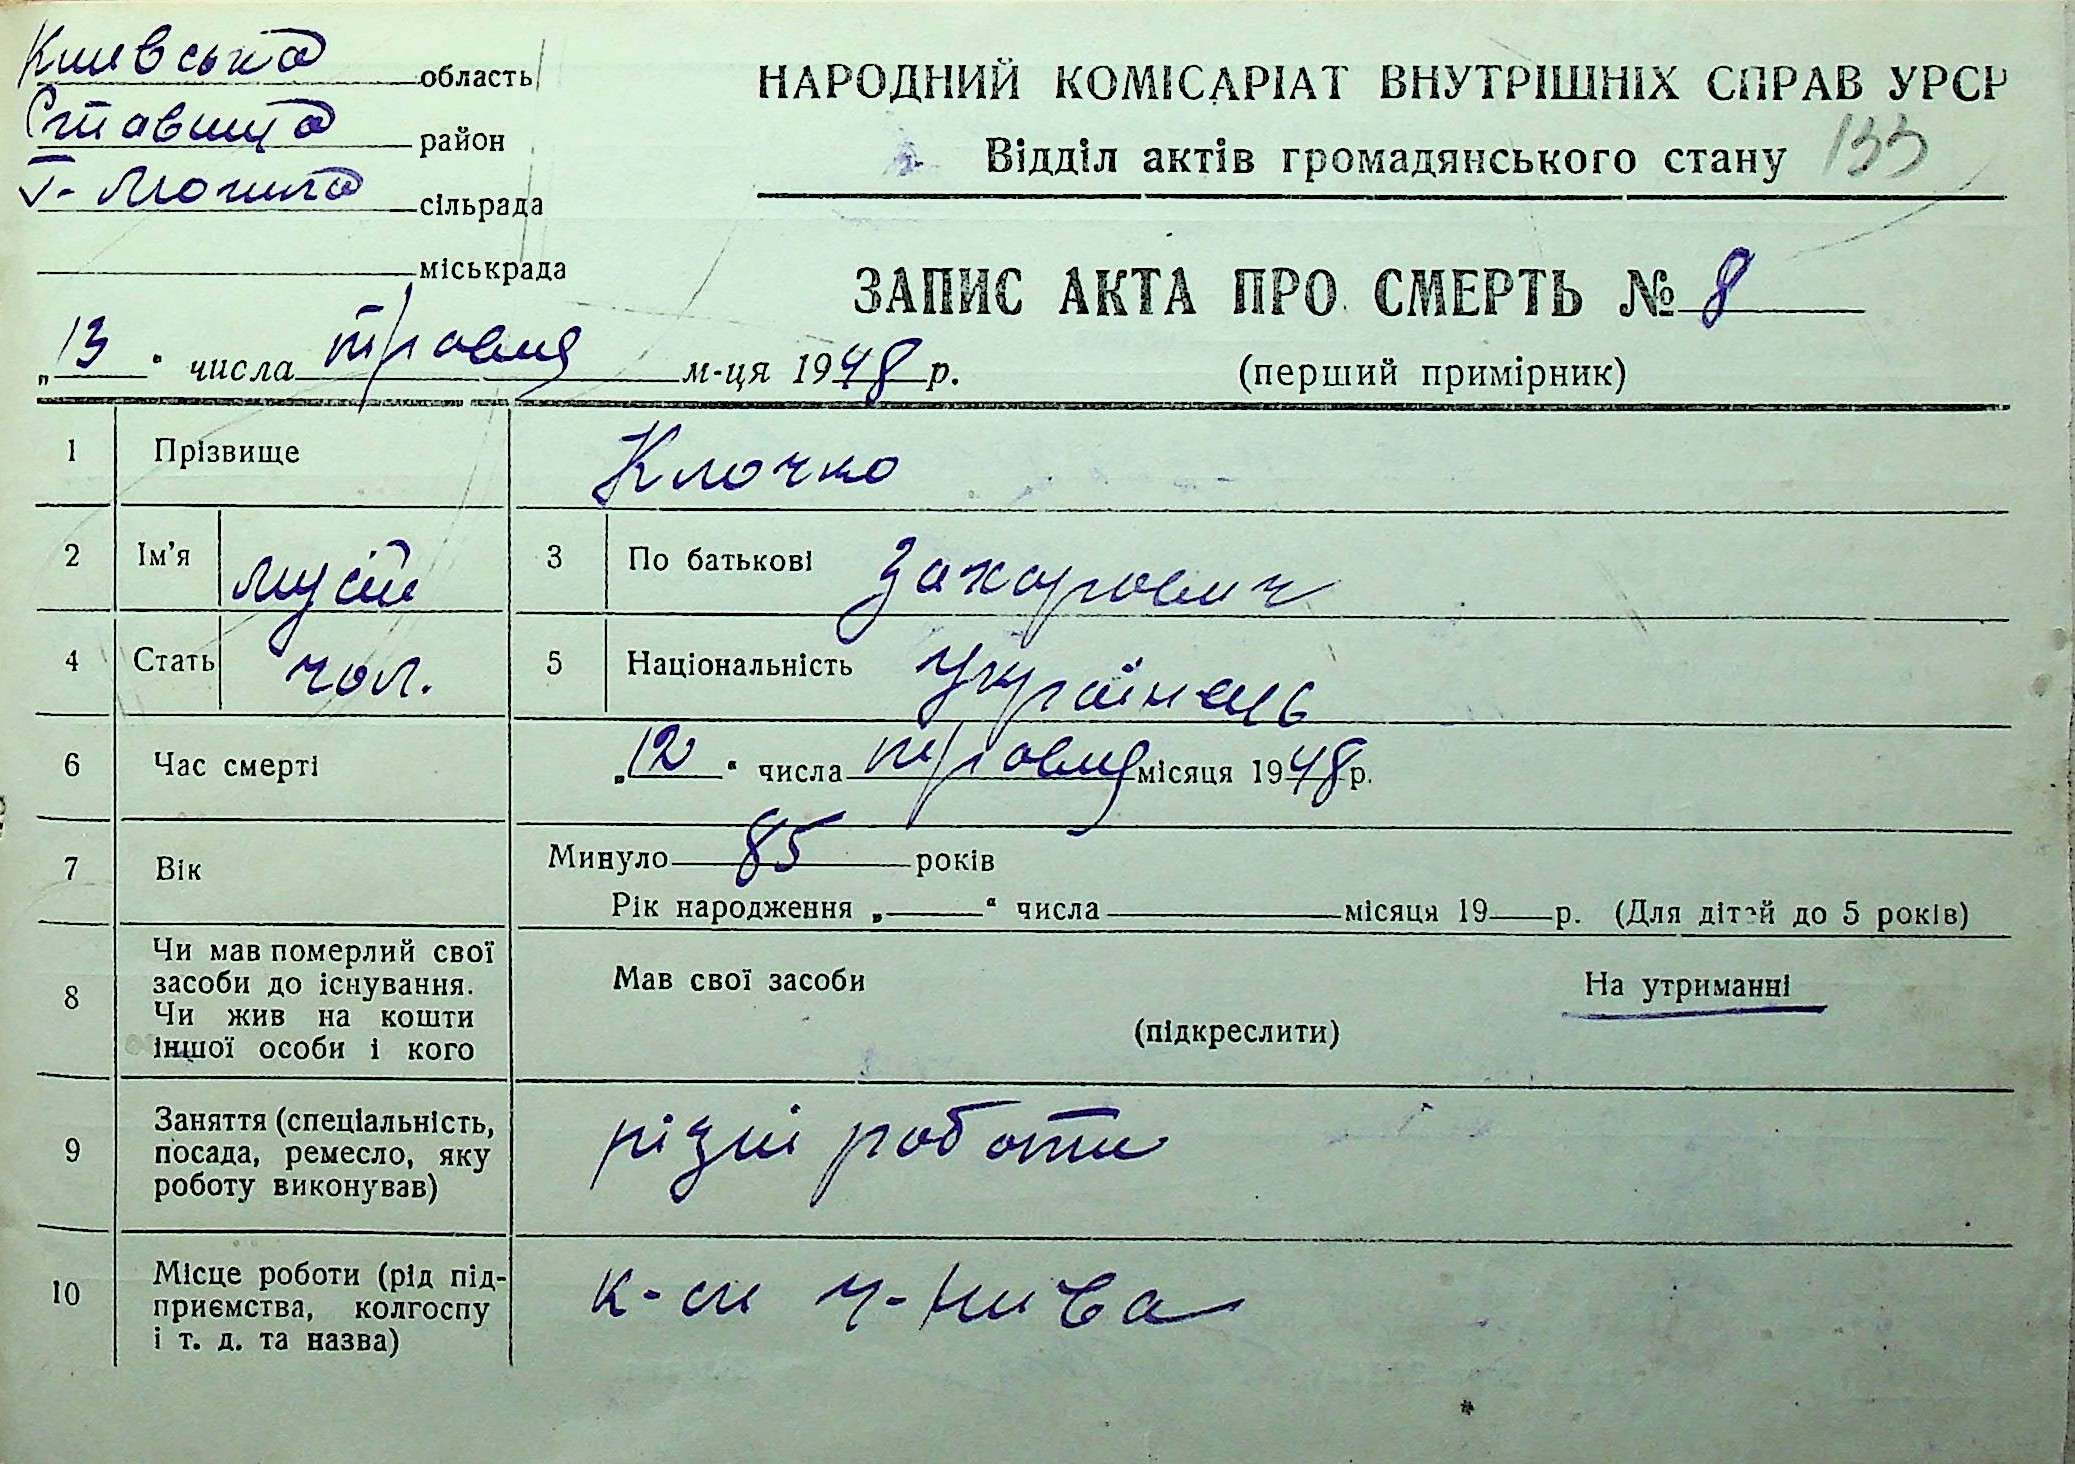 Київська область
Ставища район
Г-Могила сільрада
міськрада
НАРОДНИЙ КОМІСАРІАТ ВНУТРІШНІХ СПРАВ УРСР
Відділ актів громадянського стану 133
ЗАПИС АКТА ПРО СМЕРТЬ № 8
(перший примірник)
„13" числа травня м-ця 1948 р.
1 Прізвище Клочко
2 Ім'я Мусій 3 По батькові Захарович
4 Стать чол. 5 Національність Українець
6 Час смерті „12" числа травня місяця 1948 р.
7 Вік Минуло 85 років
Рік народження „ " числа місяця 19 р. (Для дітей до 5 років)
8 Чи мав померлий свої
засоби до існування.
Чи жив на кошти
іншої особи і кого
Мав свої засоби На утриманні
(підкреслити)
9 Заняття (спеціальність,
посада, ремесло, яку
роботу виконував)
різні роботи
10 Місце роботи (рід під-
приємства, колгоспу
і т. д. та назва)
Ч-Нива